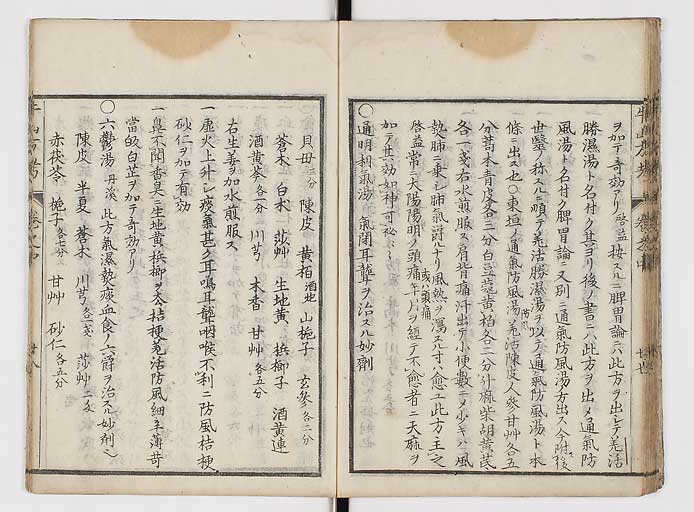 ヲ加テ奇効アリ 啓益 按スルニ脾胃論ニハ此方ヲ出シ方羌活
勝濕湯ト名付ク其ヨリ後ノ書ニハ此方ヲ出メ通氣防
風湯ト名付ク脾胃論ニ又別ニ通氣防風湯方出ス今附後
世醫ノ称スルニ順テ羌活勝濕湯ヲ以テ通氣防風湯ト本
條ニ出ス也○東垣ノ通氣防風湯 羌活 防風 陳皮人參甘艸各五
分藁本青皮各三分白豆蔲黄柏各二分升麻柴胡黄芪
各一戔右水煎服ス肩背痛汗出テ小便數ニメ少キハ風
熱肺ニ乗シ肺氣欝ルナリ風熱ヲ瀉スル寸ハ愈ユ此方主之
啓益常ニ太陽陽明ノ頭痛 或ハ頭痛 年月ヲ經テ不愈者ニ天麻ヲ
加テ其効如神可秘
○通明利氣湯 氣閉耳聾ヲ治スル妙劑
貝母 三分 陳皮 黄柏 酒炒 山梔子 玄參 各二分
蒼朮 白朮 莎艸 生地黄 梹榔子 酒黄連
酒黄芩 各一分 川芎 木香 甘艸 各五分
右生姜ヲ加水煎服ス
一虚火上升シ痰氣甚ク耳鳴耳聾咽喉不利ニ防風桔梗
砂仁ヲ加テ有効
一鼻不聞香臭ニ生地黄梹榔ヲ去桔梗羌活防風細辛薄苛
當皈白芷ヲ加テ奇効アリ
○六鬱湯 丹溪 此方氣濕熱痰血食ノ六欝ヲ治スル妙劑也
陳皮 半夏 蒼朮 川芎 各一戔 莎艸 二戔
赤茯苓 梔子 各七分 甘艸 砂仁 各五分